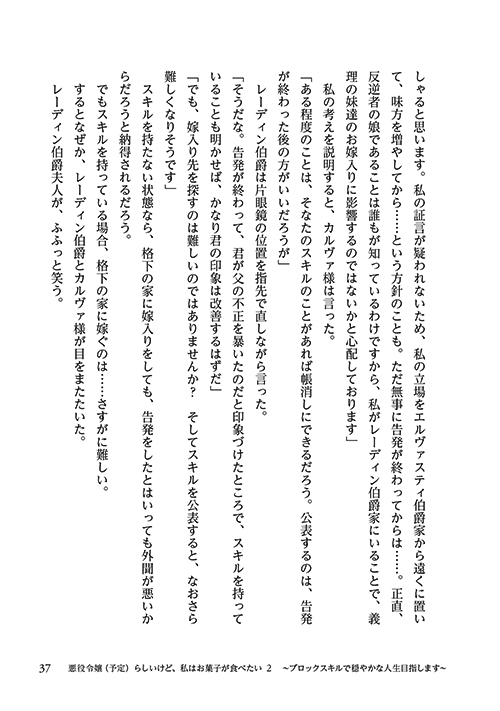 しゃると思います。私の証言が疑われないため、私の立場をエルヴァスティ伯爵家から遠くに置い
て、味方を増やしてから……という方針のことも。ただ無事に告発が終わってからは……。正直、
反逆者の娘であることは誰もが知っているわけですから、私がレーディン伯爵家にいることで、義
理の妹達のお嫁入りに影響するのではないかと心配しております」
　私の考えを説明すると、カルヴァ様は言った。
「ある程度のことは、そなたのスキルのことがあれば帳消しにできるだろう。公表するのは、告発
が終わった後の方がいいだろうが」
　レーディン伯爵は片眼鏡の位置を指先で直しながら言った。
「そうだな。告発が終わって、君が父の不正を暴いたのだと印象づけたところで、スキルを持って
いることも明かせば、かなり君の印象は改善するはずだ」
「でも、嫁入り先を探すのは難しいのではありませんか？　そしてスキルを公表すると、なおさら
難しくなりそうです」
　スキルを持たない状態なら、格下の家に嫁入りをしても、告発をしたとはいっても外聞が悪いか
らだろうと納得されるだろう。
　でもスキルを持っている場合、格下の家に嫁ぐのは……さすがに難しい。
　するとなぜか、レーディン伯爵とカルヴァ様が目をまたたいた。
　レーディン伯爵夫人が、ふふっと笑う。
37　悪役令嬢（予定）らしいけど、私はお菓子が食べたい 2　～ブロックスキルで穏やかな人生目指します～